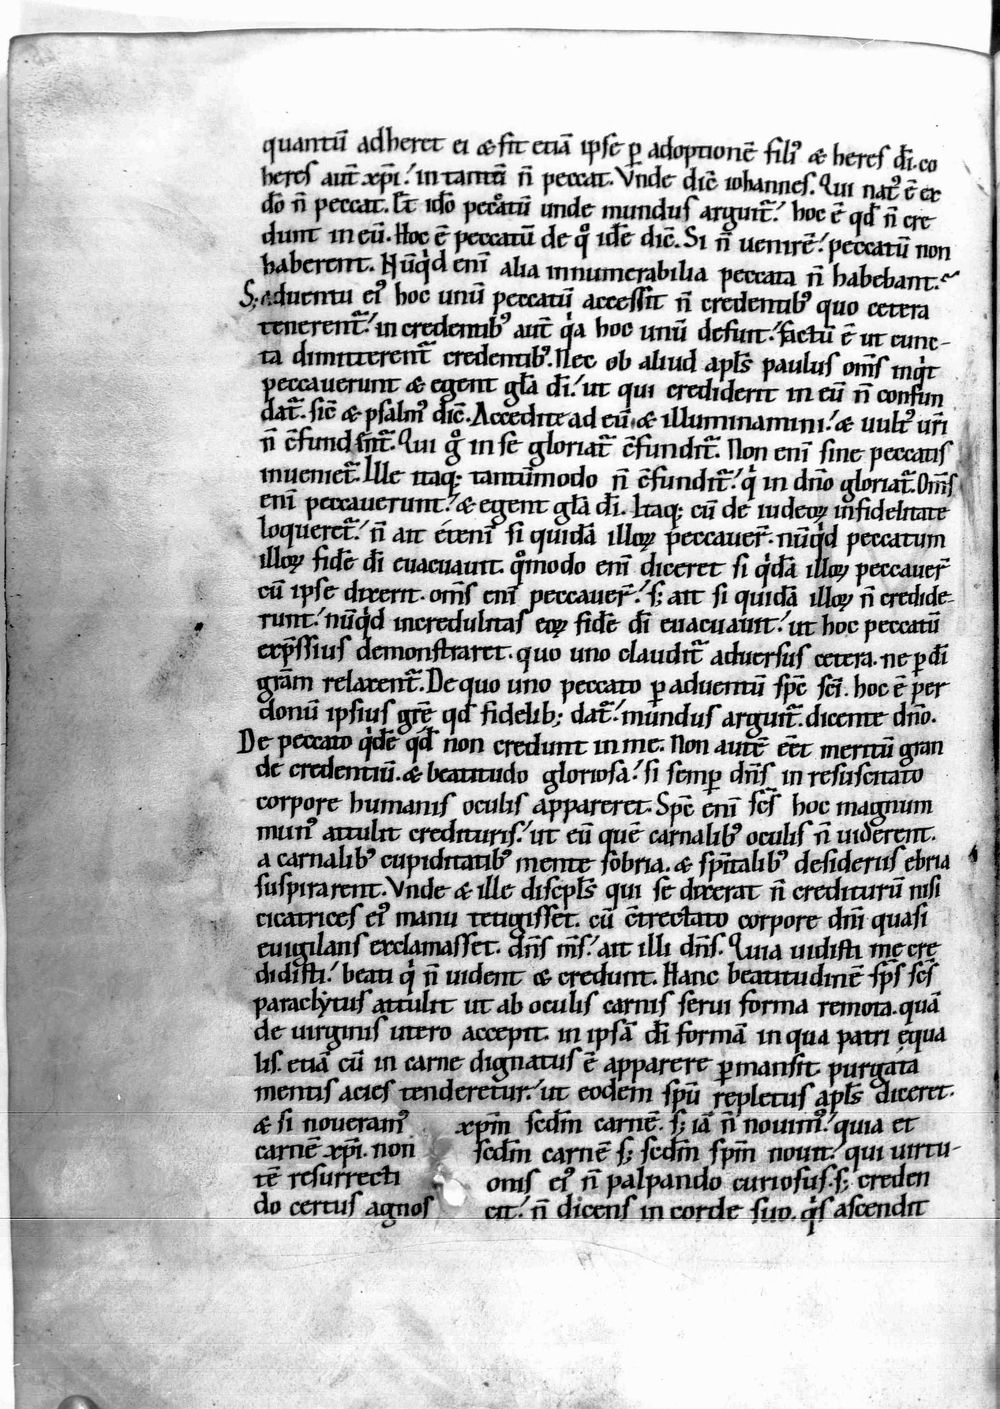 quantū adheret ei & sit etiā ipse ꝑ adoptionē filiꝰ & heres dī. co
heres aut̄ xp̄i. in tantū n̄ peccat. Vnde dic̄ iohannes. Qui natꝰ ē ex
dō n̄ peccat. Et idō peccatū unde mundus arguit̄. hoc ē qd̄ n̄ cre
dunt in eū. Hoc ē peccatū de qͦ idē dic̄. Si n̄ uenirē. peccatū non
haberent. Nūqͥd enī alia innumerabilia peccata n̄ habebant.
S; aduentu eiꝰ hoc unū peccatū accessit n̄ credentibꝰ quo cetera
tenerent̄. in credentibꝰ aut̄ qͥa hoc unū defuit. factū ē ut cunc-
ta dimitterent̄ credentibꝰ. Nec ob aliud apl̄s paulus om̄s inqͥt
peccauerunt & egent gl̄a dī. ut qui crediderit in eū n̄ confun
dat̄. sic̄ & psalmꝰ dic̄. Accedite ad eū & illuminamini. & uultꝰ ur̄i
n̄ c̄fundent̄. Qui gͦ in se gloriat̄ c̄fundit̄. Non enī sine peccatis
inueniet̄. Ille itaq; tantūmodo n̄ c̄fundit̄. qͥ in dn̄o gloriat̄. Om̄s
enī peccauerunt. & egent gl̄a dī. Itaq; cū de iudeoꝝ infidelitate
loqueret̄. n̄ ait etenī si quidā illoꝝ peccauer̄. nūqͥd peccatum
illoꝝ fidē dī euacuauit. qͦmodo enī diceret si qͥdā illoꝝ peccauer̄
cū ipse dixerit. om̄s enī peccauer̄. s; ait si quidā illoꝝ n̄ credide-
runt. nūqͥd incredulitas eoꝝ fidē dī euacuauit. ut hoc peccatū
exp̄ssius demonstraret. quo uno claudit̄ aduersus cetera. ne ꝑ dī
grām relaxent̄. De quo uno peccato ꝑ aduentū spc̄ sc̄i. hoc ē per
donū ipsius grē qd̄ fidelib; dat̄. mundus arguit̄. dicente dn̄o.
De peccato qͥdē qd̄ non credunt in me. Non autē eēt meritū gran
de credentiū. & beatitudo gloriosa. si semꝑ dn̄s in resuscitato
corpore humanis oculis appareret. Spc̄ enī sc̄s hoc magnum
munꝰ attulit credituris. ut eū quē carnalibꝰ oculis n̄ uiderent.
a carnalibꝰ cupiditatibꝰ mente sobria. & spīt̄alibꝰ desideriis ebria
suspirarent. Vnde & ille discipl̄s qui se dixerat n̄ crediturū nisi
cicatrices eiꝰ manu tetigisset. cū c̄trectato corpore dn̄i quasi
euigilans exclamasset. dn̄s m̄s. ait illi dn̄s. Quia uidisti me cre
didisti. beati qͥ n̄ uident & credunt. Hanc beatitudinē sp̄s sc̄s
paraclytus attulit ut ab oculis carnis serui forma remota. quā
de uirginis utero accepit. in ipsā dī formā in qua patri equa
lis. etiā cū in carne dignatus ē apparere ꝑmansit. purgata
mentis acies tenderetur. ut eodem spū repletus apl̄s diceret.
& si noueramꝰ xp̄m scdm̄ carnē. s; iā n̄ nouimꝰ. quia et
carnē xp̄i. non scdm̄ carnē s; scdm̄ sp̄m nouit. qui virtu-
tē resurrecti onis eiꝰ n̄ palpando curiosus. s; creden
do certus agnos cit. n̄ dicens in corde suo. qͥs ascendit